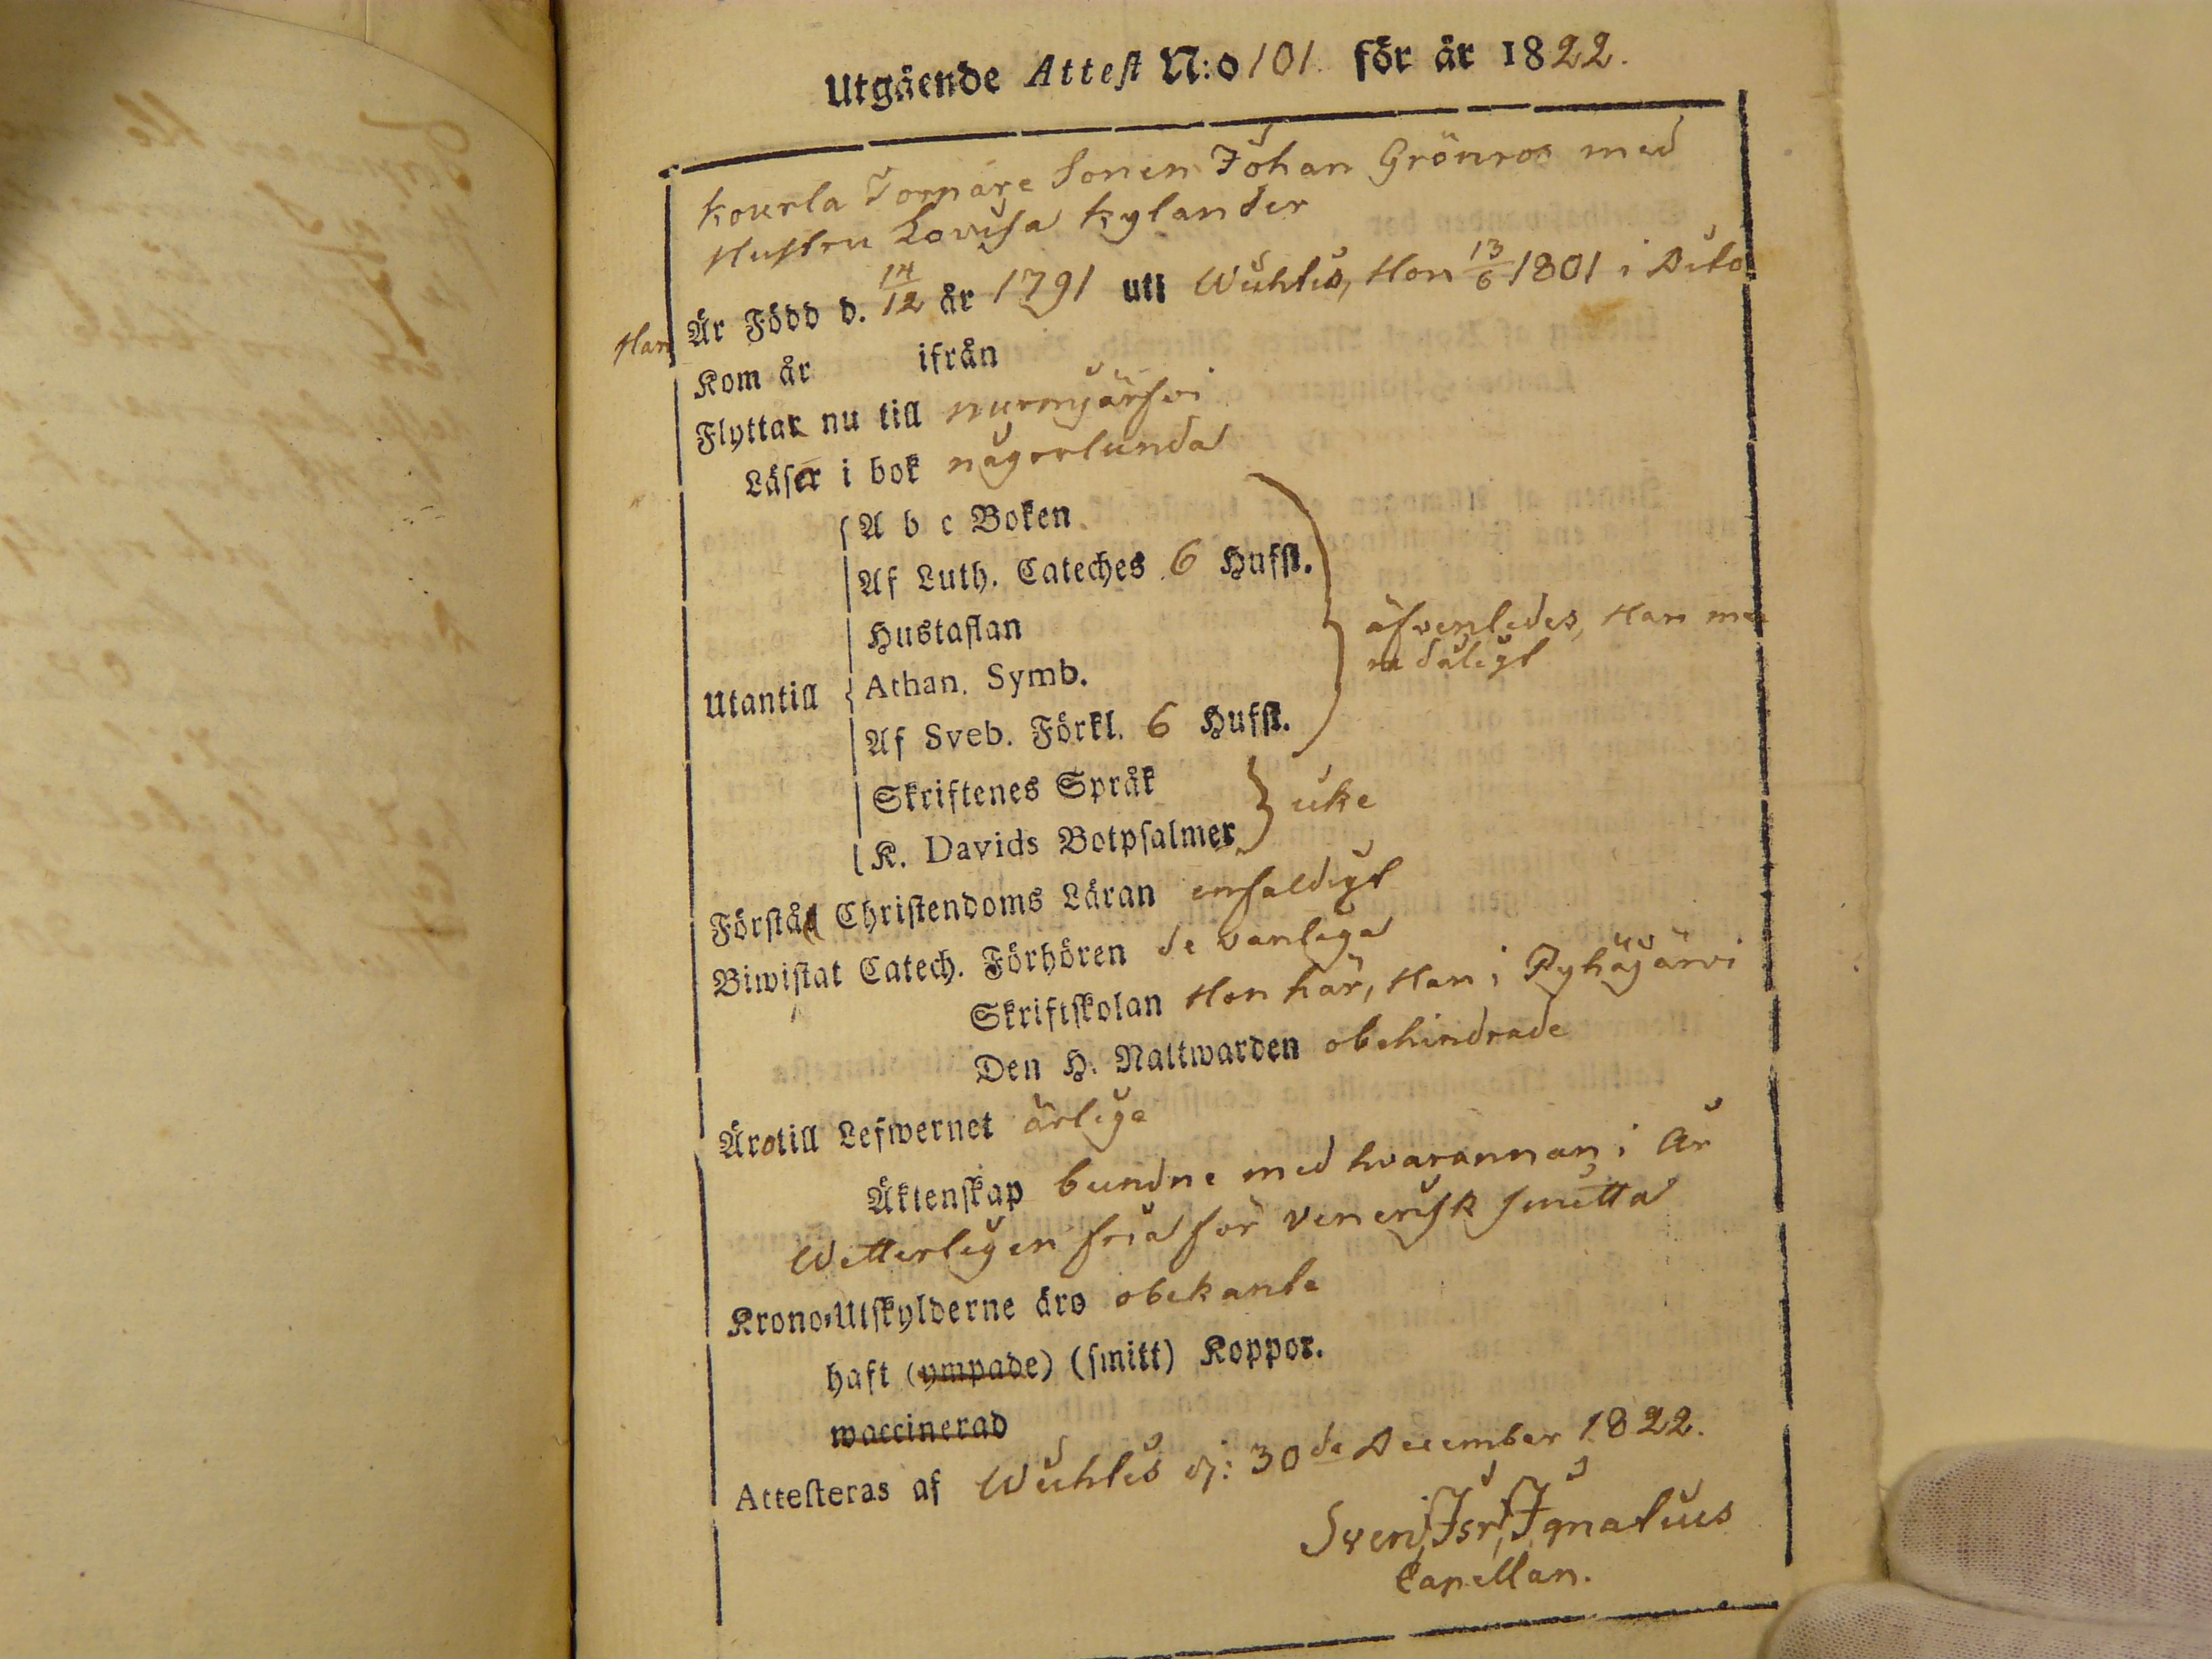 Utgående Attest N:o 101. för år 1822.
Kourla Torpare Sonen Johan Grönroos med
Hustru Lovisa Kylander
Han Är Född d. 14/12 år 1791 uti Wichtis, Hon 13/6 1801 i Dito
Kom år ifrån
Flyttar nu till nurmijärfvi
Läser i bok någorlunda
A b c Boken
Af Luth. Cateches 6 Hufst.
Hustaflan
äfvenledes, Han me
ra dåligt
Utantill Athan. Symb.
Af Sveb. Förkl. 6 Hufst.
Skriftenes Språk
icke
K. Davids Botpsalmer
Förstå Christendoms Läran enfaldigt
Biwistat Catech. Förhören de vanliga
Skriftskolan Hon här, Han i Pyhäjärvi
Den H. Nattwarden obehindrade
Äro till Lefwernet ärliga
Äktenskap bundne med hvarannan i År
Wetterligen fria för venerisk smitta
Krono-Utskylderne äro obekante
haft (ympade) (smitt) Koppor.
waccinerad
Attesteras af Wichtis d: 30de December 1822.
Sven Isr. Ignatius
Capellan.